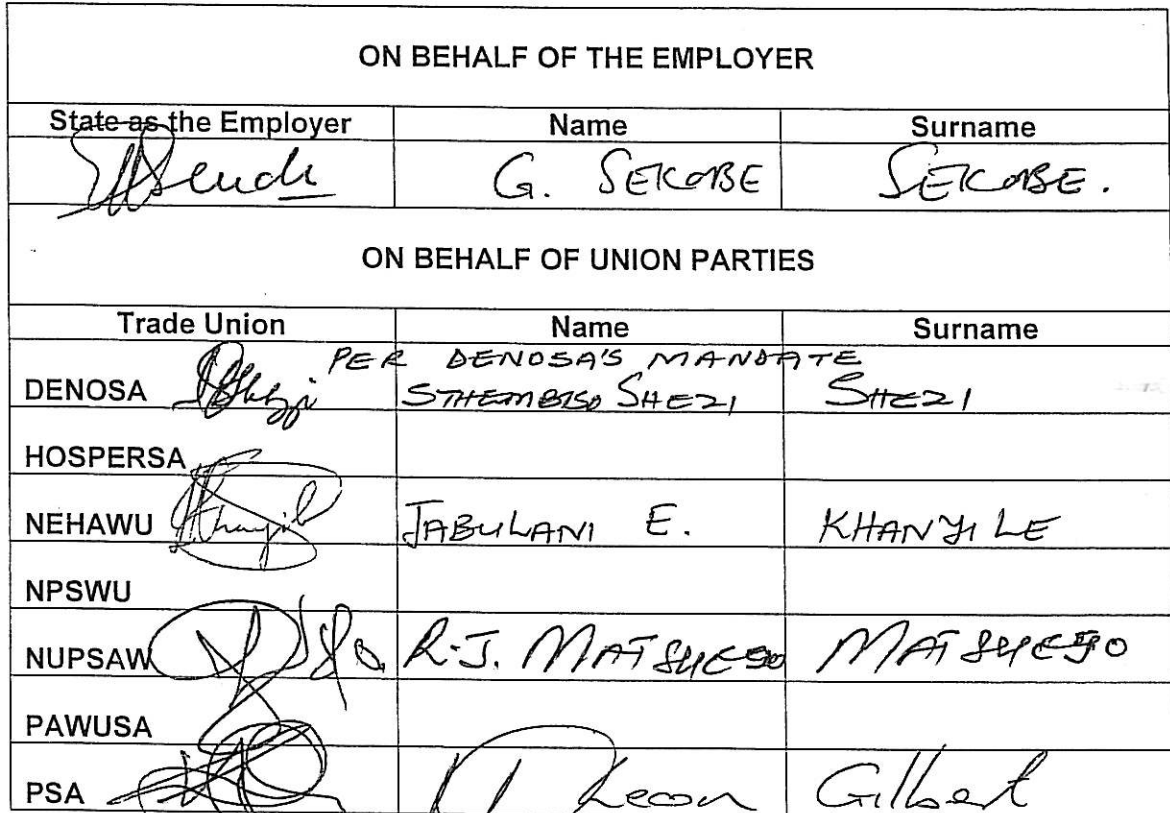 ON BEHALF OF THE EMPLOYER
State as the Employer Name Surname
G. SEKOBE SEKOBE.
ON BEHALF OF UNION PARTIES
Trade Union Name Surname
PER DENOSA'S MANDATE
DENOSA STHEMBISO SHEZI SHEZI
HOSPERSA
NEHAWU JABULANI E. KHANYILE
NPSWU
NUPSAW R.J. MATSHEGO MATSHEGO
PAWUSA
PSA Leon Gilbert